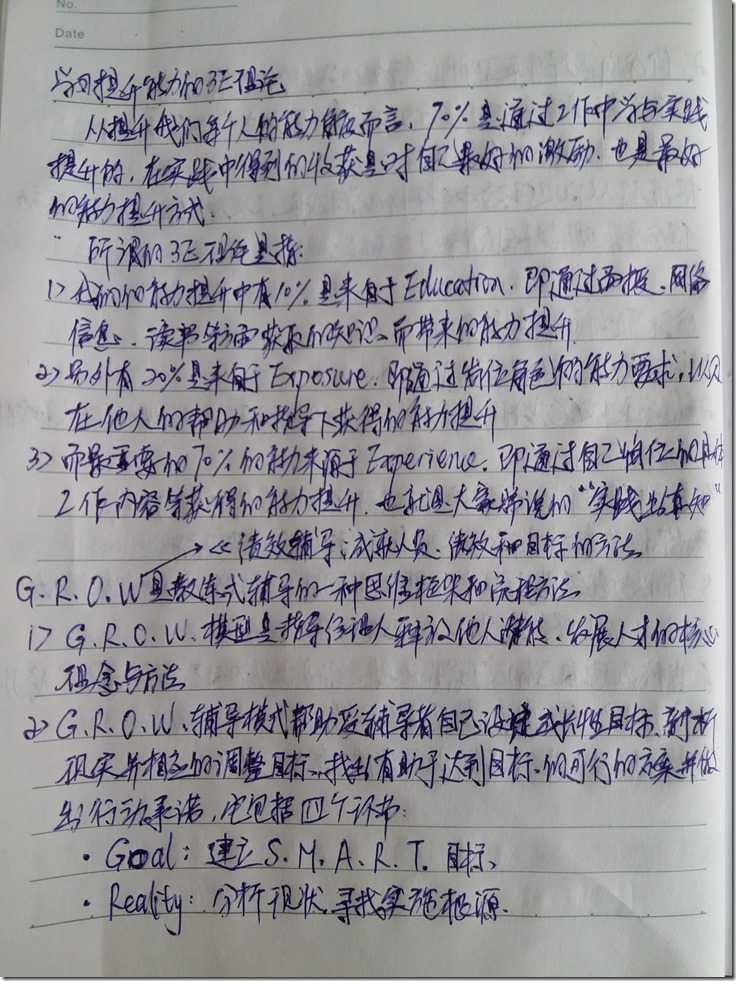 No.
Date
学习提升能力的3E理论
从提升我们每个人的能力角度而言，70%是通过工作中学与实践
提升的，在实践中得到的收获是对自己最好的激励，也是最好
的能力提升方式.
所谓的3E理论是指:
1) 我们的能力提升中有10%是来自于Education，即通过面授、网络
信息、读书等方面获取的知识，而带来的能力提升
2) 另外有20%是来自于Exposure，即通过岗位角色的能力要求，以及
在他人的帮助和指导下获得的能力提升
3) 而最重要的70%的能力来源于Experience，即通过自己岗位的具体
工作内容等获得的能力提升，也就是大家常说的"实践出真知"
<<绩效辅导：成就人员、绩效和目标的方法
G.R.O.W是教练式辅导的一种思维框架和流程方法
1) G.R.O.W.模型是指导经理人释放他人潜能、发展人才的核心
理念与方法
2) G.R.O.W.辅导模式帮助受辅导者自己设建成长性目标、
现实并相应的调整目标、找出有助于达到目标的可行的方案并做
出行动承诺，它包括四个环节:
• Goal: 建立S.M.A.R.T.目标、
• Reality: 分析现状，寻找实施根源.